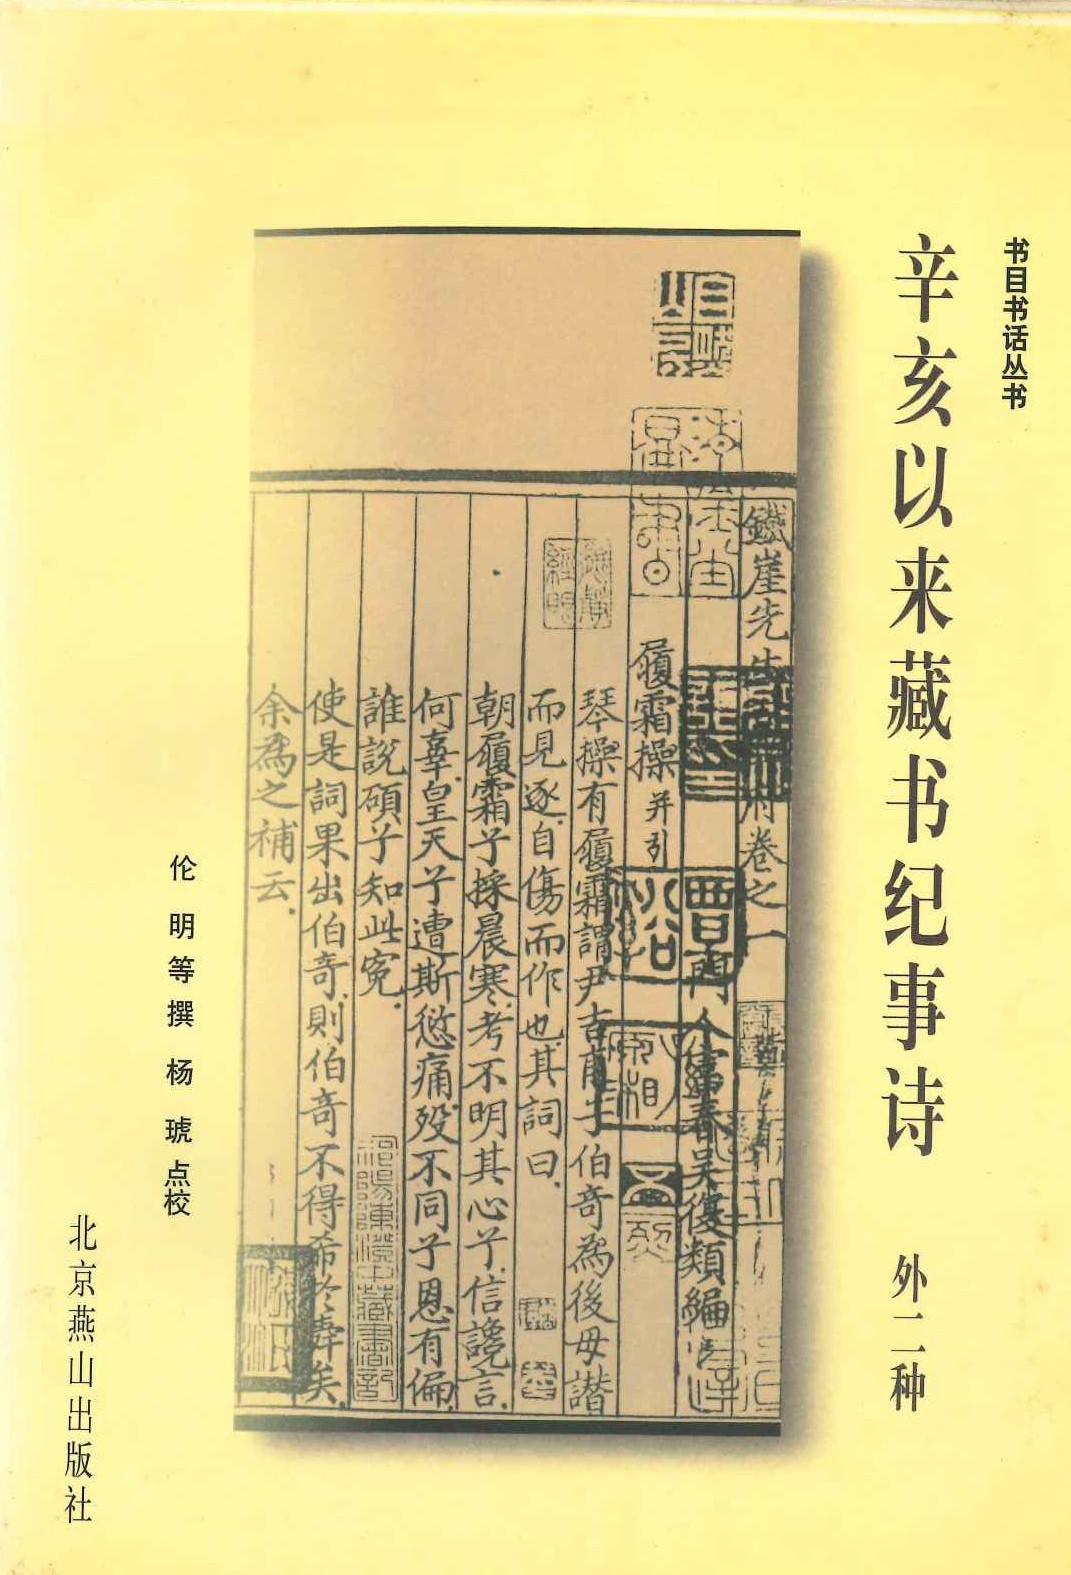 书目书话丛书
辛亥以来藏书纪事诗 外二种
鐵崖先生
卷之一
門人富春吴復類編
履霜操并引
琴操有履霜謂尹吉甫子伯奇為後母譖
而見逐自傷而作也其詞曰
朝履霜兮採晨寒考不明其心兮信讒言
何辜皇天兮遭斯愆痛殁不同兮恩有偏
誰説碩兮知此寃
使是詞果出伯奇則伯奇不得希於舜矣
余為之補云
伦明等撰 杨琥点校
北京燕山出版社